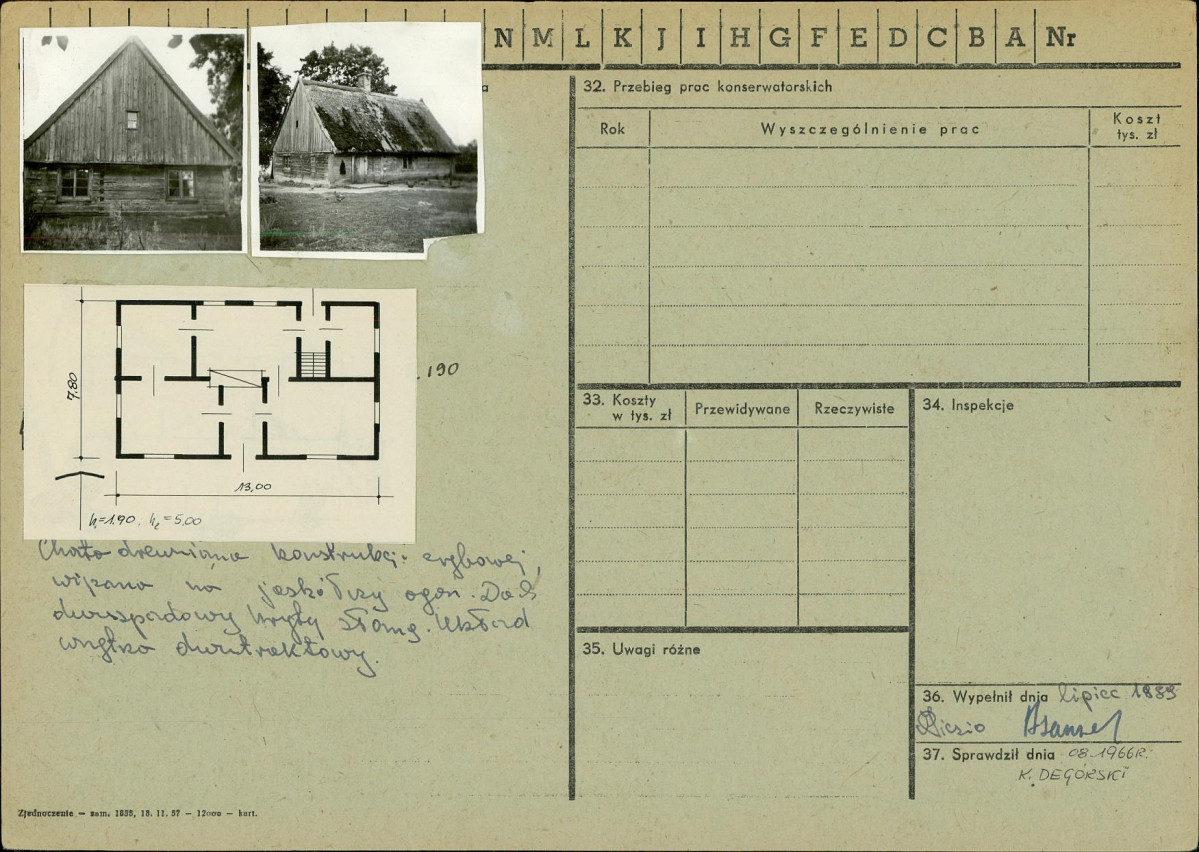 N M L K J I H G F E D C B A Nr
a
32. Przebieg prac konserwatorskich
Rok
Wyszczególnienie prac
Koszt
tys. zł
190
7,80
13,00
h₁=1.90, h₂=5.00
Chata drewniana konstrukcji zrębowej,
wiązana na jaskółczy ogon. Dach
dwuspadowy kryty słomą. Układ
wnętrza dwutraktowy.
33. Koszty
w tys. zł
Przewidywane
Rzeczywiste
34. Inspekcje
35. Uwagi różne
36. Wypełnił dnia lipiec 1959
37. Sprawdził dnia 08.1966R.
K. DEGÓRSKI
Zjednoczenie — zam. 1858, 18. 11. 57 — 12000 — kart.